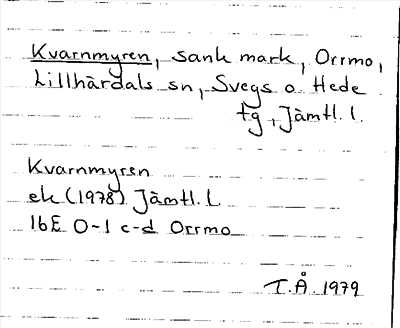 Kvarnmyren, sank mark, Orrmo,
Lillhärdals sn, Svegs o. Hede
tg, Jämtl. l.
Kvarnmyren
ek (1978) Jämtl. L
16E 0-1 c-d Orrmo
T.Å. 1979